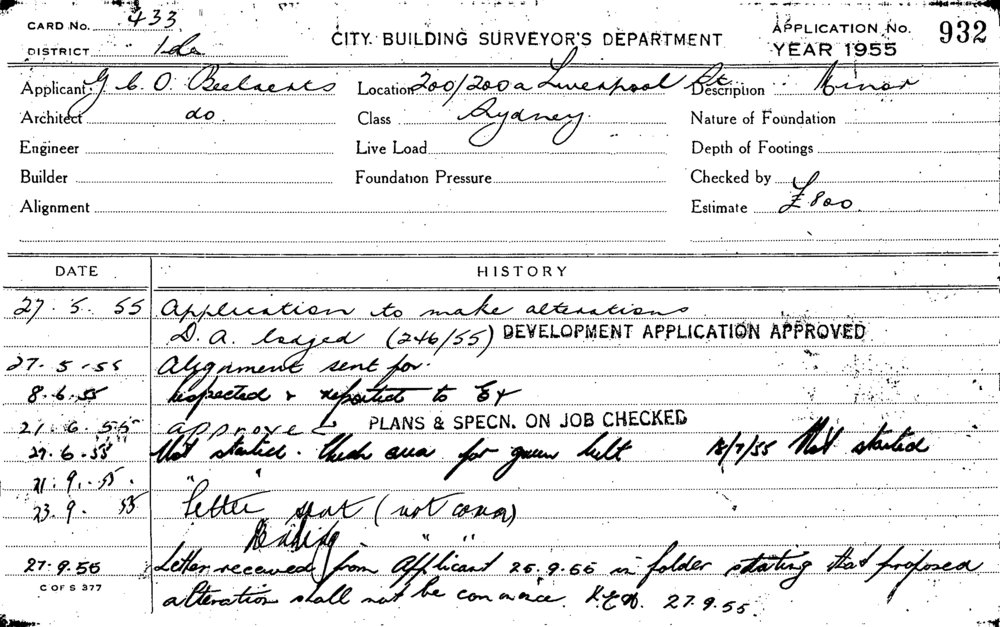 CARD No. 433
DISTRICT
CITY BUILDING SURVEYOR'S DEPARTMENT
APPLICATION No. 932
YEAR 1955
Applicant G. C. O. Location 200/200a Liverpool St. Description Minor
Architect do Class Sydney. Nature of Foundation
Engineer Live Load Depth of Footings
Builder Foundation Pressure Checked by
Alignment Estimate £800.
DATE HISTORY
27. 5. 55 Application to make alterations
D. A. lodged (246/55) DEVELOPMENT APPLICATION APPROVED
27. 5. 55 Alignment sent for.
8. 6. 55 Inspected & reported to
21. 6. 55 approved PLANS & SPECN. ON JOB CHECKED
29. 6. 55 Not started. Check area for green belt 18/7/55 Not started
21. 9. 55. " "
23. 9. 55 letter sent (not)
" "
27.9.55 Letter received from Applicant 25.9.55 in folder stating that proposed
C OF S 377
alteration shall not be 27.9.55.